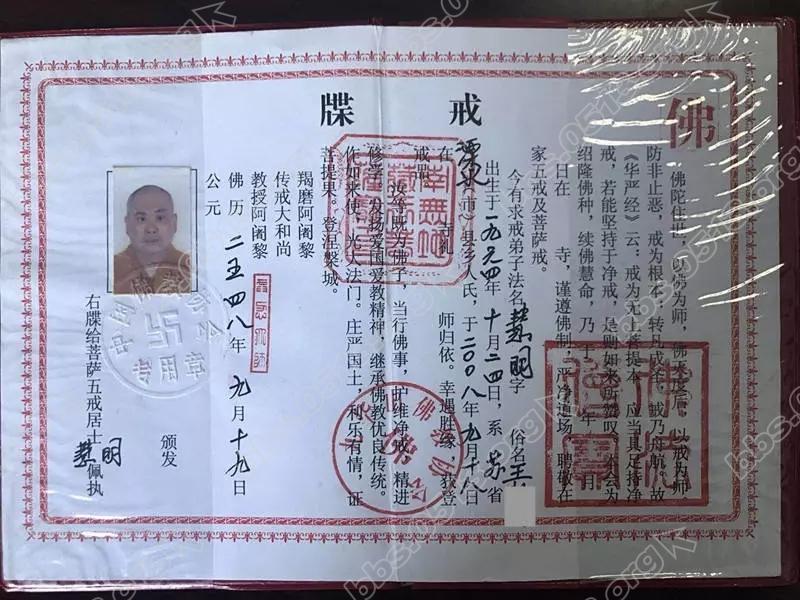 戒牒
佛
佛陀住世，以佛为师，佛灭度后，以戒为师
防非止恶，戒为根本；转凡成圣，戒乃舟航。故
《华严经》云：戒为无上菩提本，应当具足持净
戒，若能坚持于净戒，是则如来所赞叹。本会为
绍隆佛种，续佛慧命，乃于　年　月
日在　寺，谨遵佛制，严净道场，聘敬在
家五戒及菩萨戒。
今有求戒弟子法名慧明字　俗名王
出生于一九六四年十月二四日，系苏省
市）县乡人氏，于二〇〇八年九月十八日
在　寺礼　师归依。幸遇胜缘，获登
戒品
汝等既为佛子，当行佛事，护维净戒，精进
修学，发扬爱国爱教精神，继承佛教优良传统。
作如来使，光大法门。庄严国土，利乐有情，证
菩提果。登涅槃城。
羯磨阿阇黎
传戒大和尚
教授阿阇黎
佛历二五四八年九月十九日
公元
颁发
右牒给菩萨五戒居士慧明佩执
专用章
佛法僧宝
bbs.0515.org